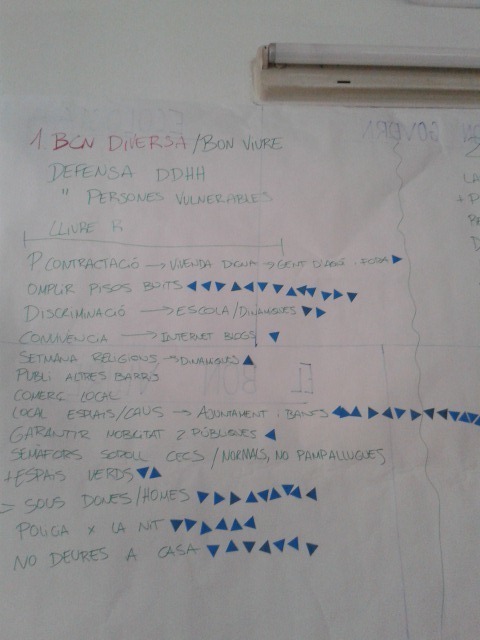 1. BCN DIVERSA / BON VIURE
DEFENSA DDHH
" PERSONES VULNERABLES
LLIURE
CONTRACTACIÓ → VIVENDA DIGNA → GENT D'AQUÍ
OMPLIR PISOS BUITS
DISCRIMINACIÓ → ESCOLA/DINAMIQUES
CONVIVÈNCIA → INTERNET BLOGS
SETMANA RELIGIONS → DINAMIQUES
PUBLI ALTRES BARRIS
COMERÇ LOCAL
LOCAL ESPLAIS/CAUS → AJUNTAMENT I BANCS
GARANTIR MOBILITAT PÚBLIQUES
SEMÀFORS SOROLL CECS / NORMALS, NO PAMPALLUGUES
+ ESPAIS VERDS
SOUS DONES/HOMES
POLICIA X LA NIT
NO DEURES A CASA
GOVERN
EL BON
LA
+ P